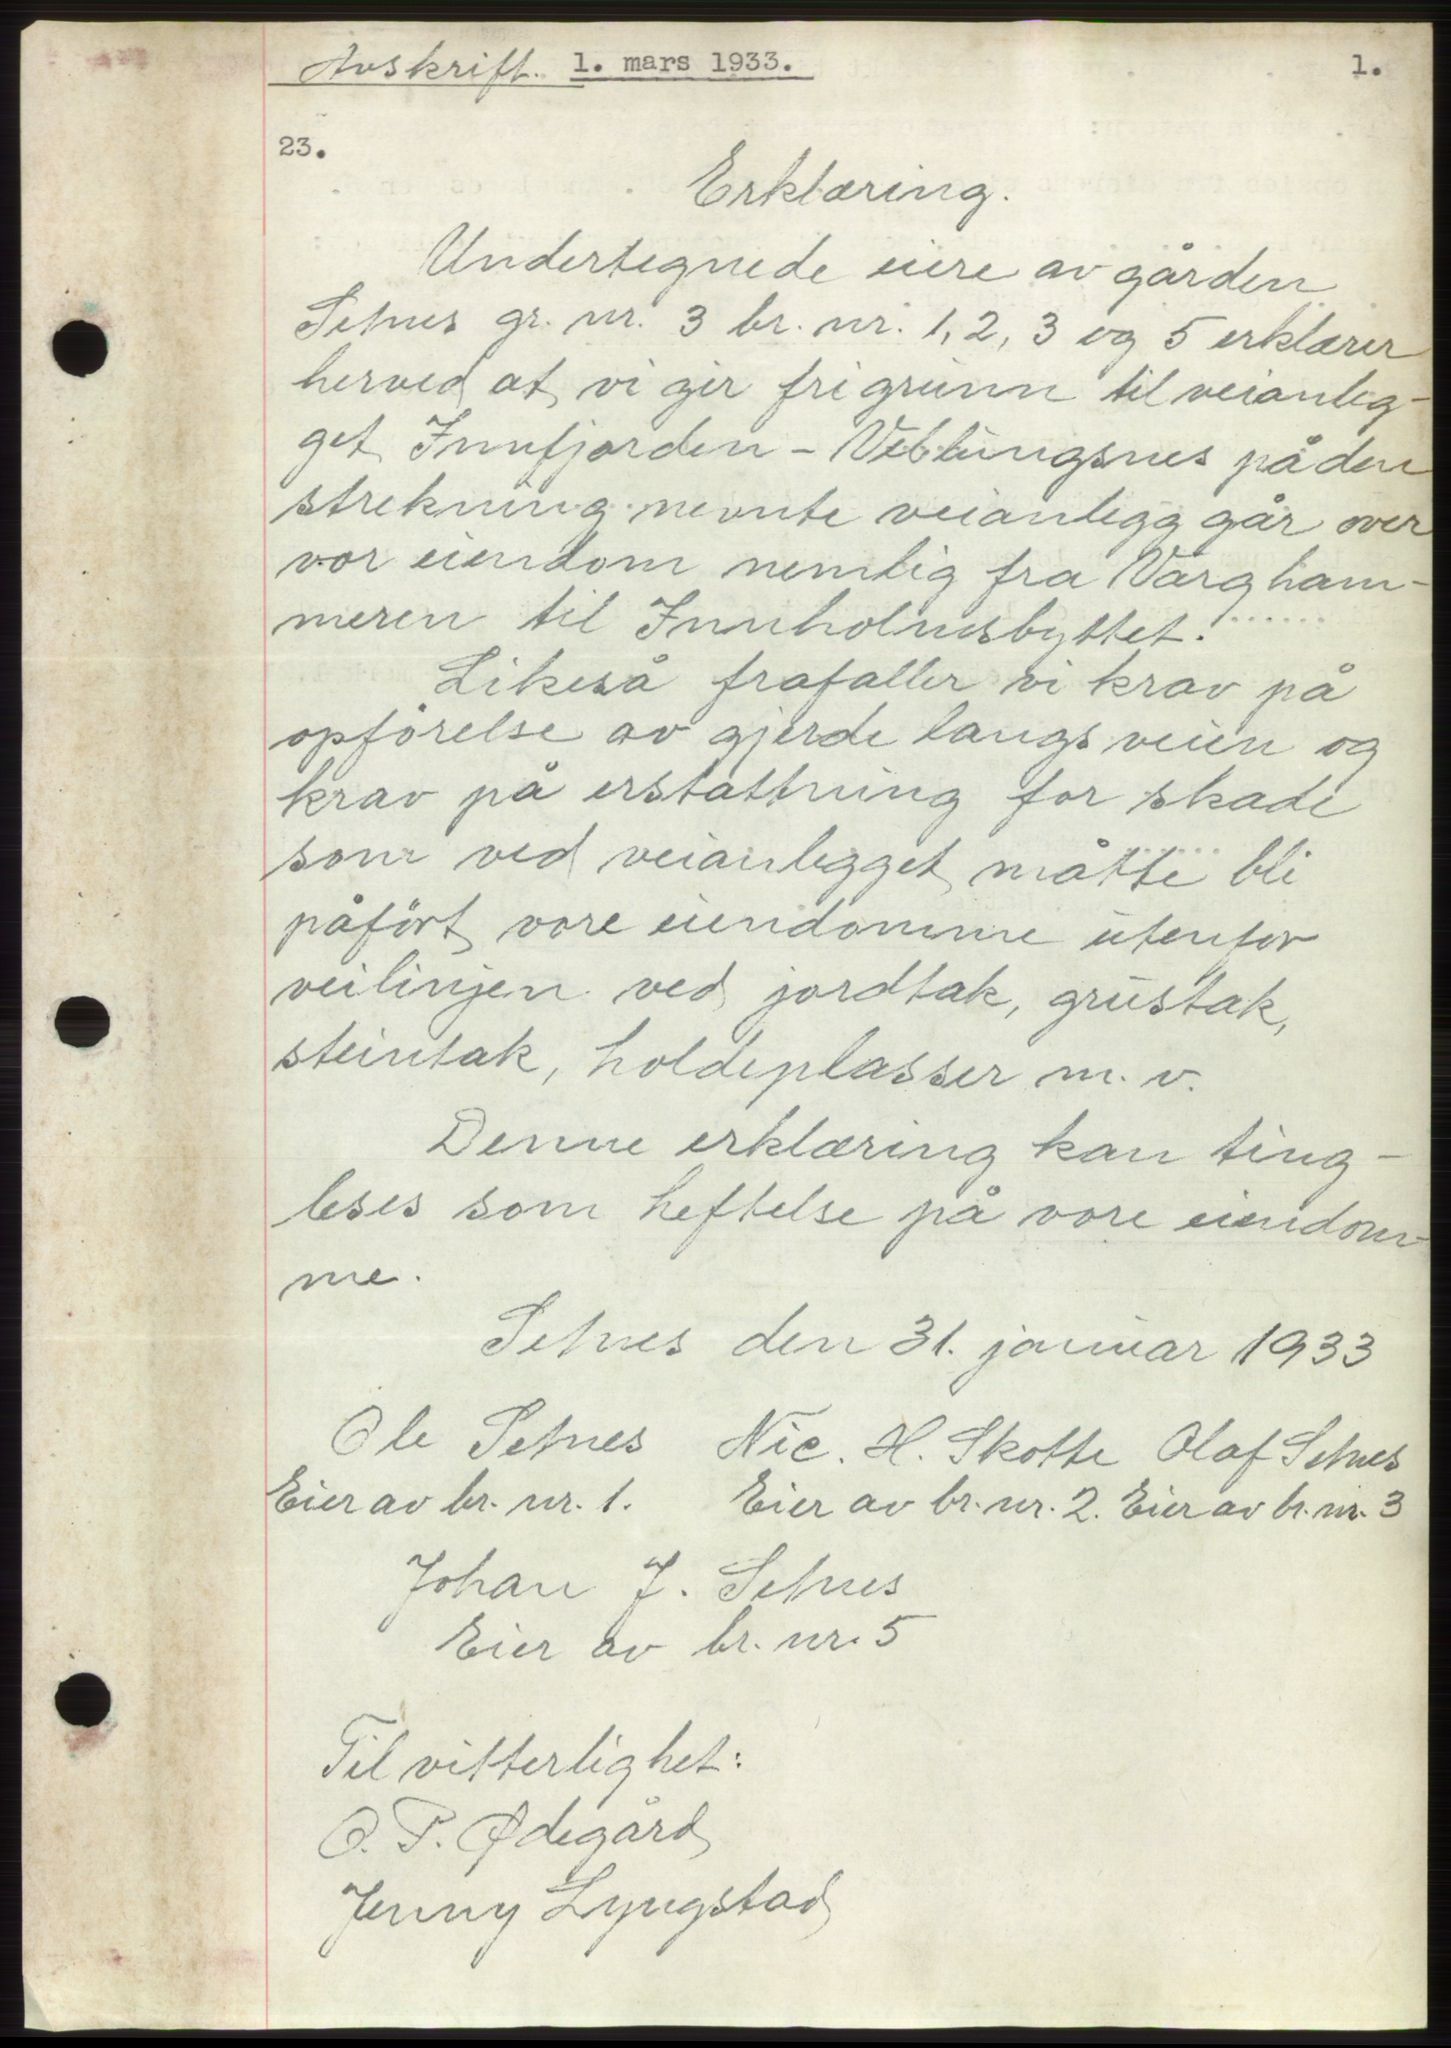 Avskrift. 1. mars 1933. 1.
23.
Erklæring.
Undertegnede eiere av gården
Setnes gr. nr. 3 br. nr. 1, 2, 3 og 5 erklærer
herved at vi gir fri grunn til veianleg-
get Innfjorden - Veblungsnes på den
strekning nevnte veianlegg går over
vor eiendom nemlig fra Vargham-
meren til Innholmsbyttet.
Likeså frafaller vi krav på
opførelse av gjerde langs veien og
krav på erstattning for skade
som ved veianlegget måtte bli
påført vore eiendomme utenfor
veilinjen ved jordtak, grustak,
steintak, holdeplasser m. v.
Denne erklæring kan ting-
leses som heftelse på vore eiendom-
me.
Setnes den 31. januar 1933
Ole Setnes Nic. H. Skotte Olaf Setnes
Eier av br. nr. 1. Eier av br. nr. 2. Eier av br. nr. 3
Johan J. Setnes
Eier av br. nr. 5
Til vitterlighet:
O. P. Ødegård
Jenny Lyngstad